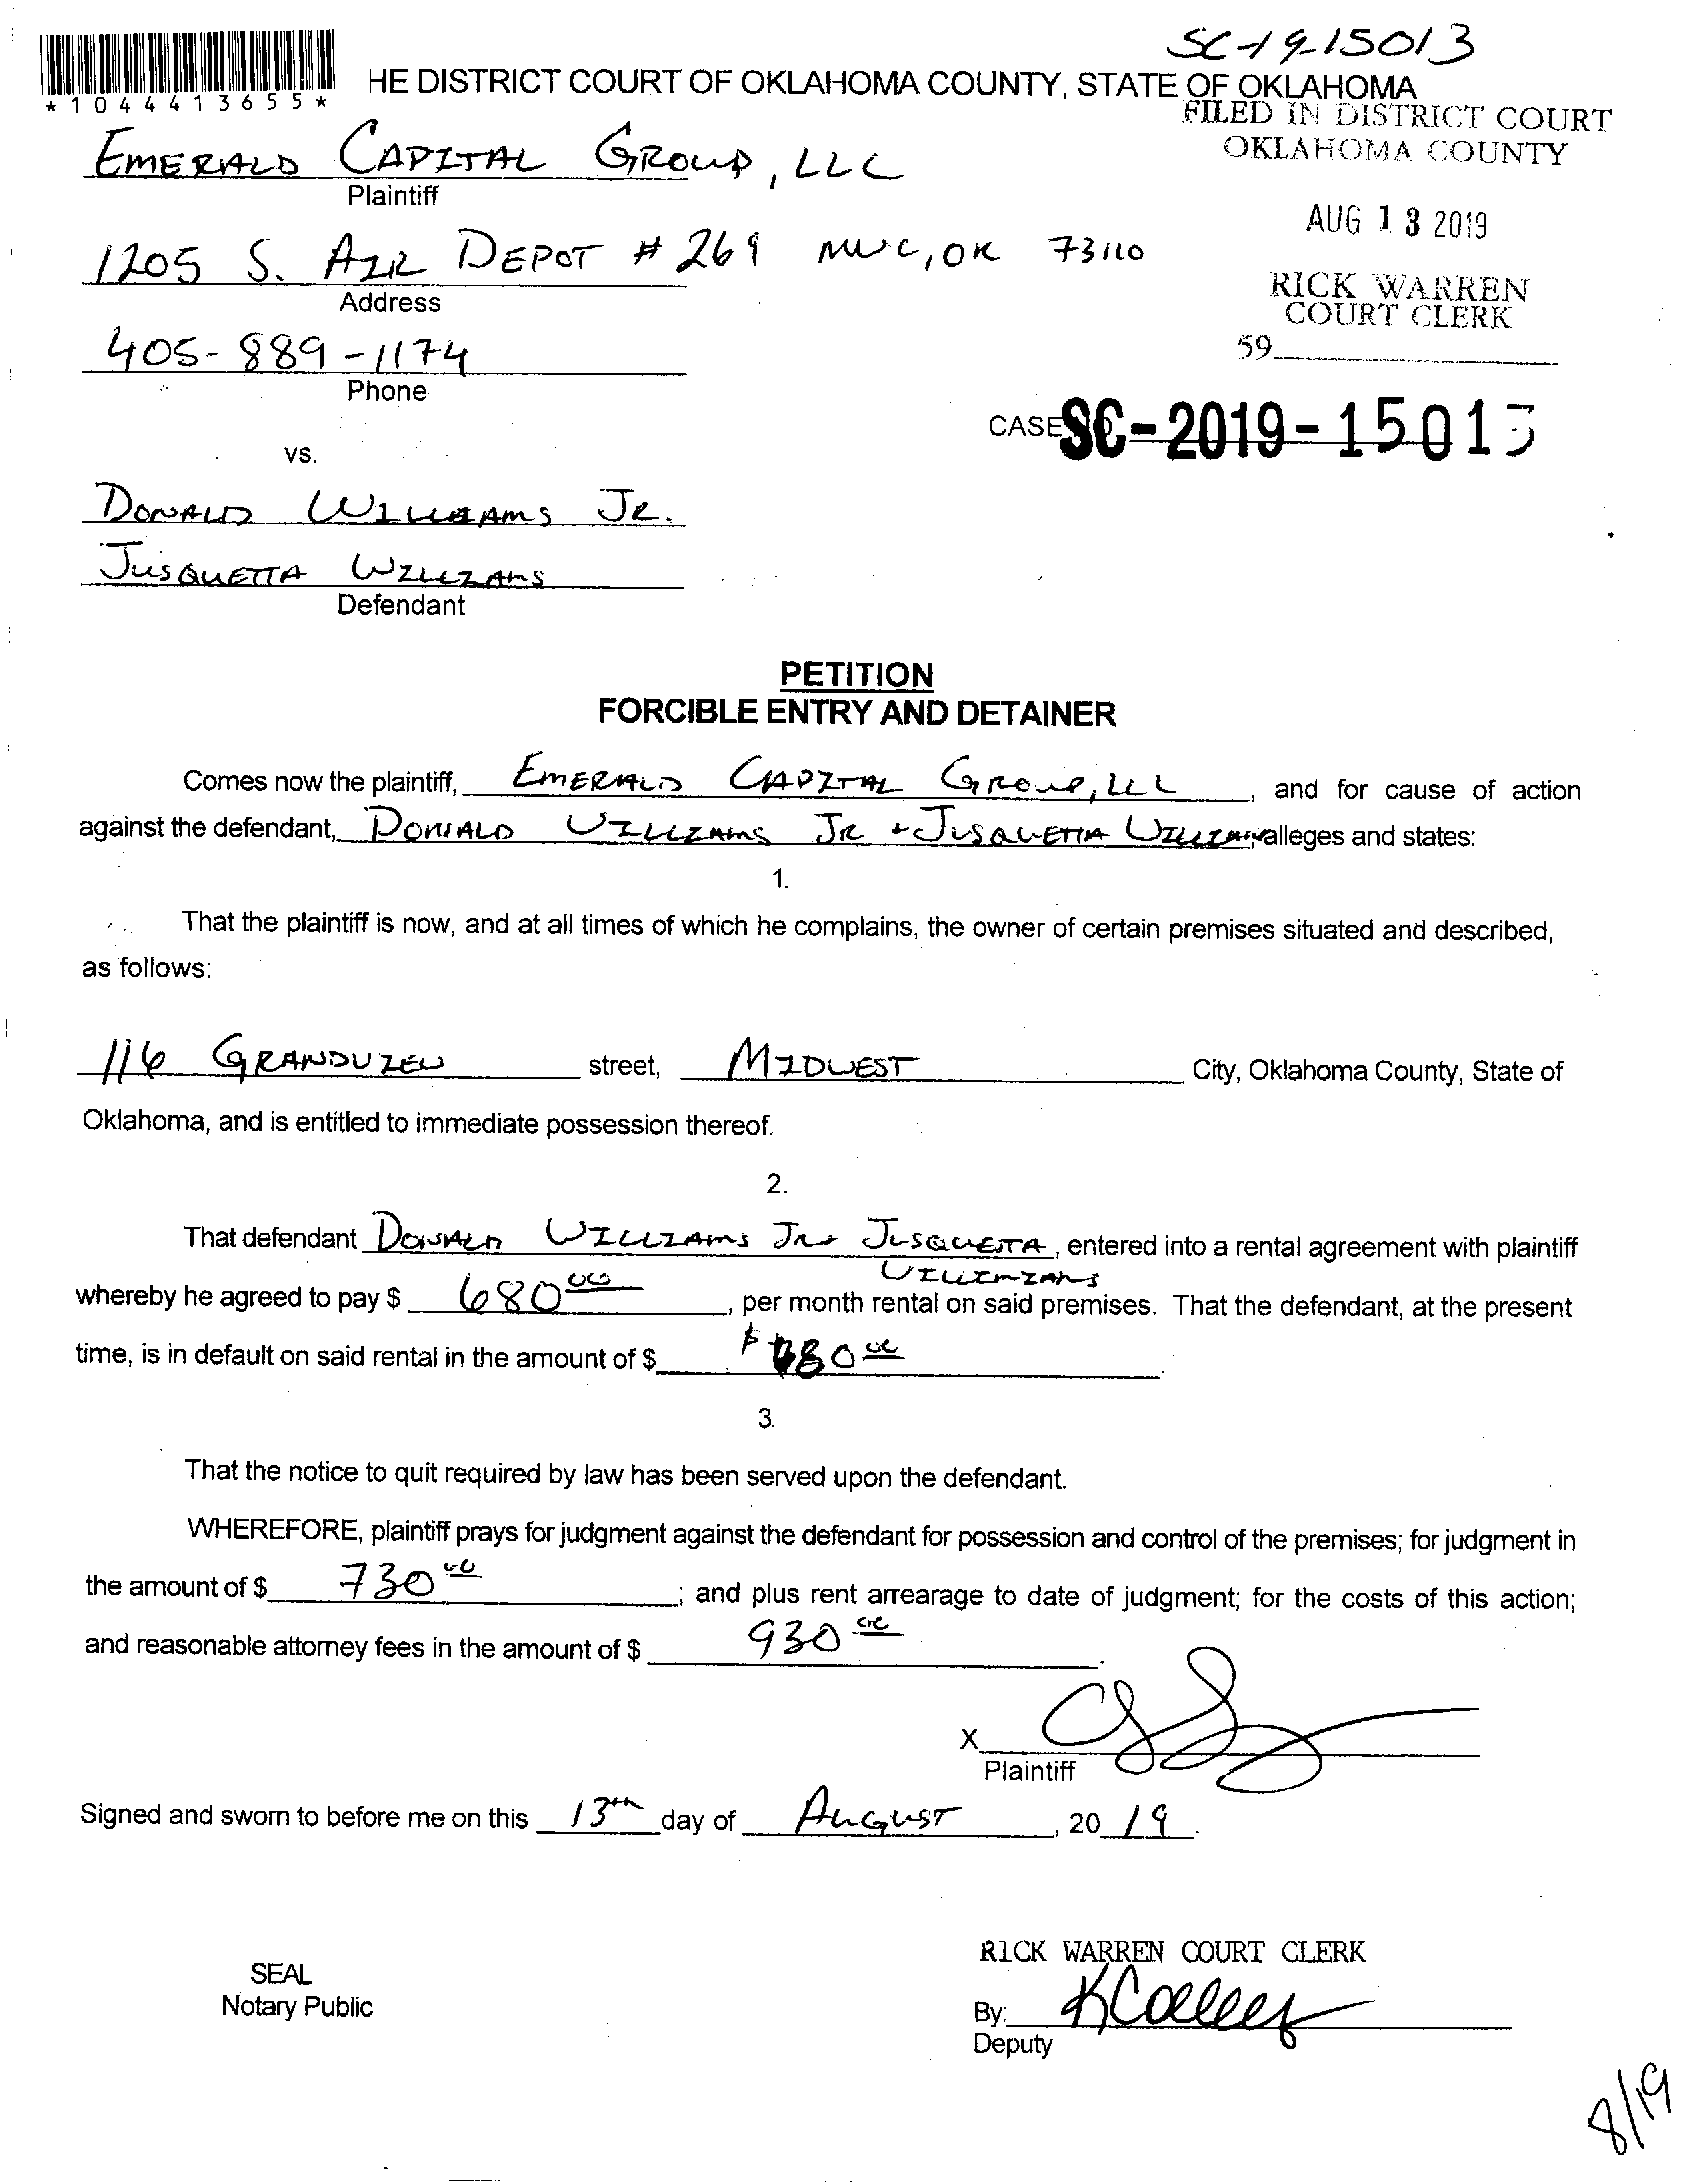 SC-19-15013
*1044413655*
HE DISTRICT COURT OF OKLAHOMA COUNTY, STATE OF OKLAHOMA
FILED IN DISTRICT COURT
OKLAHOMA COUNTY
EMERALD CAPITAL GROUP, LLC
Plaintiff
AUG 13 2019
1205 S. AIR DEPOT #269 MWC, OK 73110
Address
RICK WARREN
COURT CLERK
405-889-1174
Phone
59
CASE SC-2019-15013
vs.
DONALD WILLIAMS JR.
JUSQUETTA WILLIAMS
Defendant
PETITION
FORCIBLE ENTRY AND DETAINER
Comes now the plaintiff, EMERALD CAPITAL GROUP, LLC, and for cause of action
against the defendant, DONALD WILLIAMS JR + JUSQUETTA WILLIAMS alleges and states:
1.
That the plaintiff is now, and at all times of which he complains, the owner of certain premises situated and described,
as follows:
116 GRANDVIEW street, MIDWEST City, Oklahoma County, State of
Oklahoma, and is entitled to immediate possession thereof.
2.
That defendant DONALD WILLIAMS JR + JUSQUETTA, entered into a rental agreement with plaintiff
WILLIAMS
whereby he agreed to pay $ 680 00, per month rental on said premises. That the defendant, at the present
time, is in default on said rental in the amount of $ $ 80 00.
3.
That the notice to quit required by law has been served upon the defendant.
WHEREFORE, plaintiff prays for judgment against the defendant for possession and control of the premises; for judgment in
the amount of $ 730 00; and plus rent arrearage to date of judgment; for the costs of this action;
and reasonable attorney fees in the amount of $ 930 00.
X
Plaintiff
Signed and sworn to before me on this 13th day of AUGUST, 2019.
RICK WARREN COURT CLERK
SEAL
Notary Public
By:
Deputy
8/19